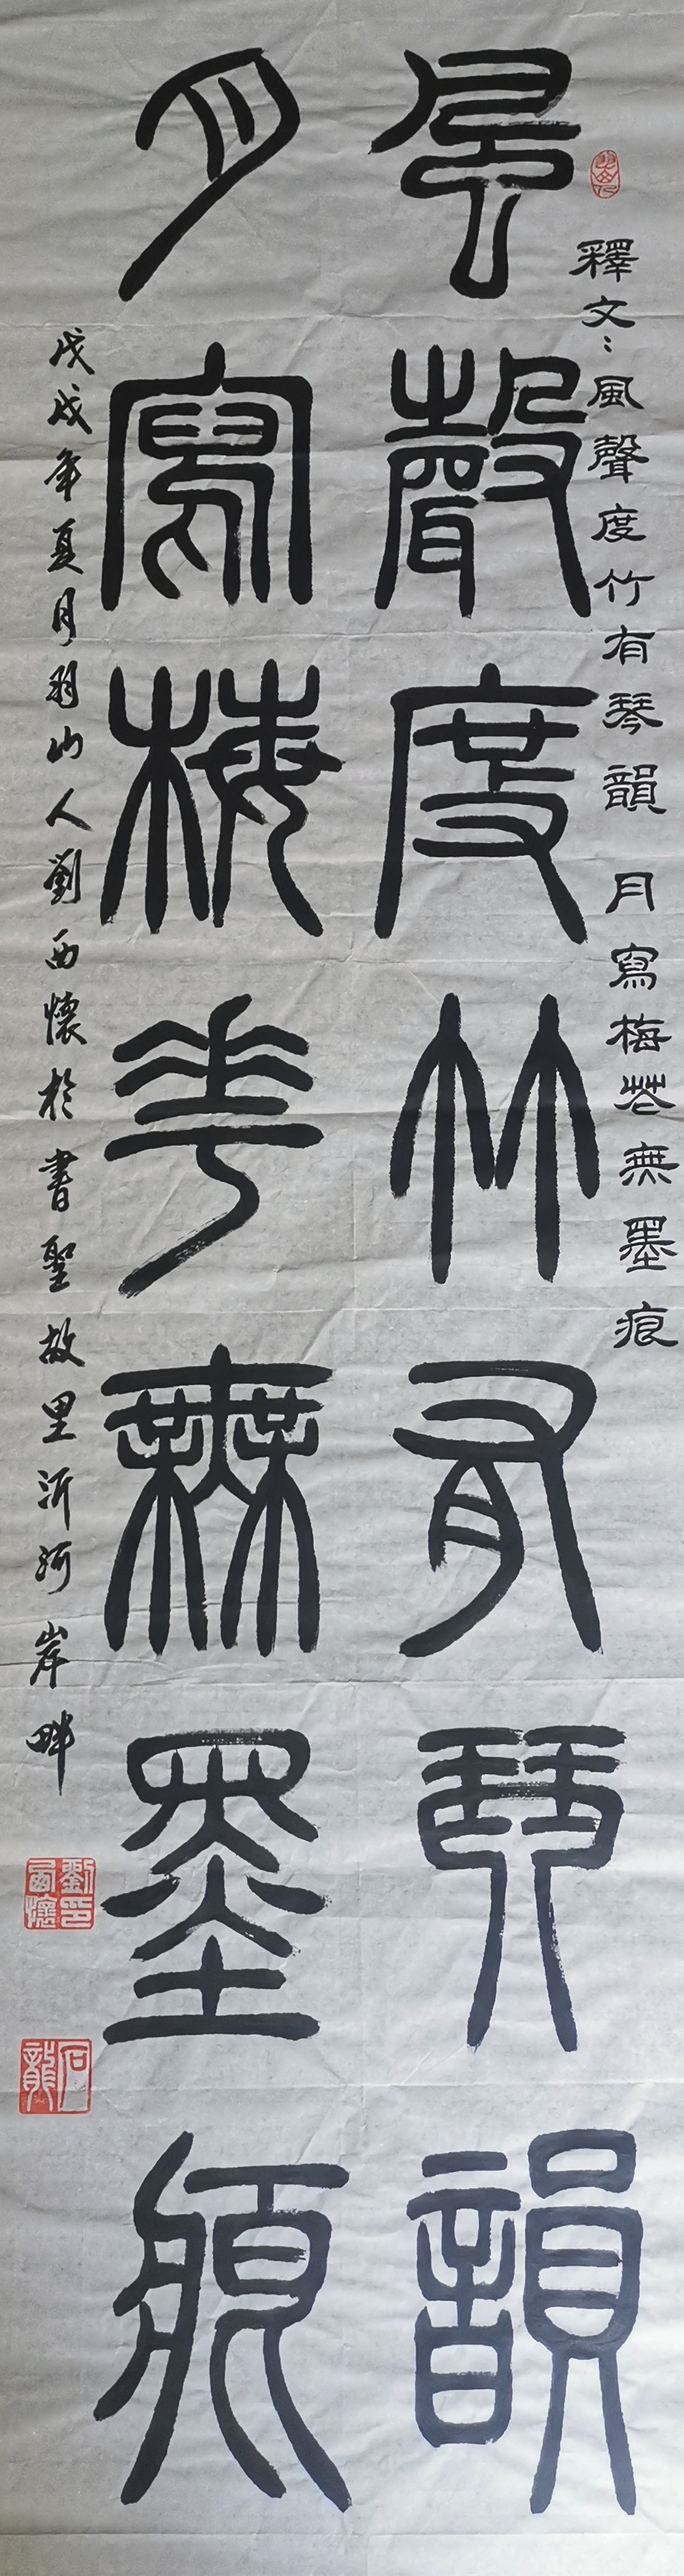 釋文：風聲度竹有琴韻　月寫梅花無墨痕
風聲度竹有琴韻
月寫梅華無墨痕
戊戌年夏月羽山人劉西懷於書聖故里沂河岸畔
劉西懷印
石龍